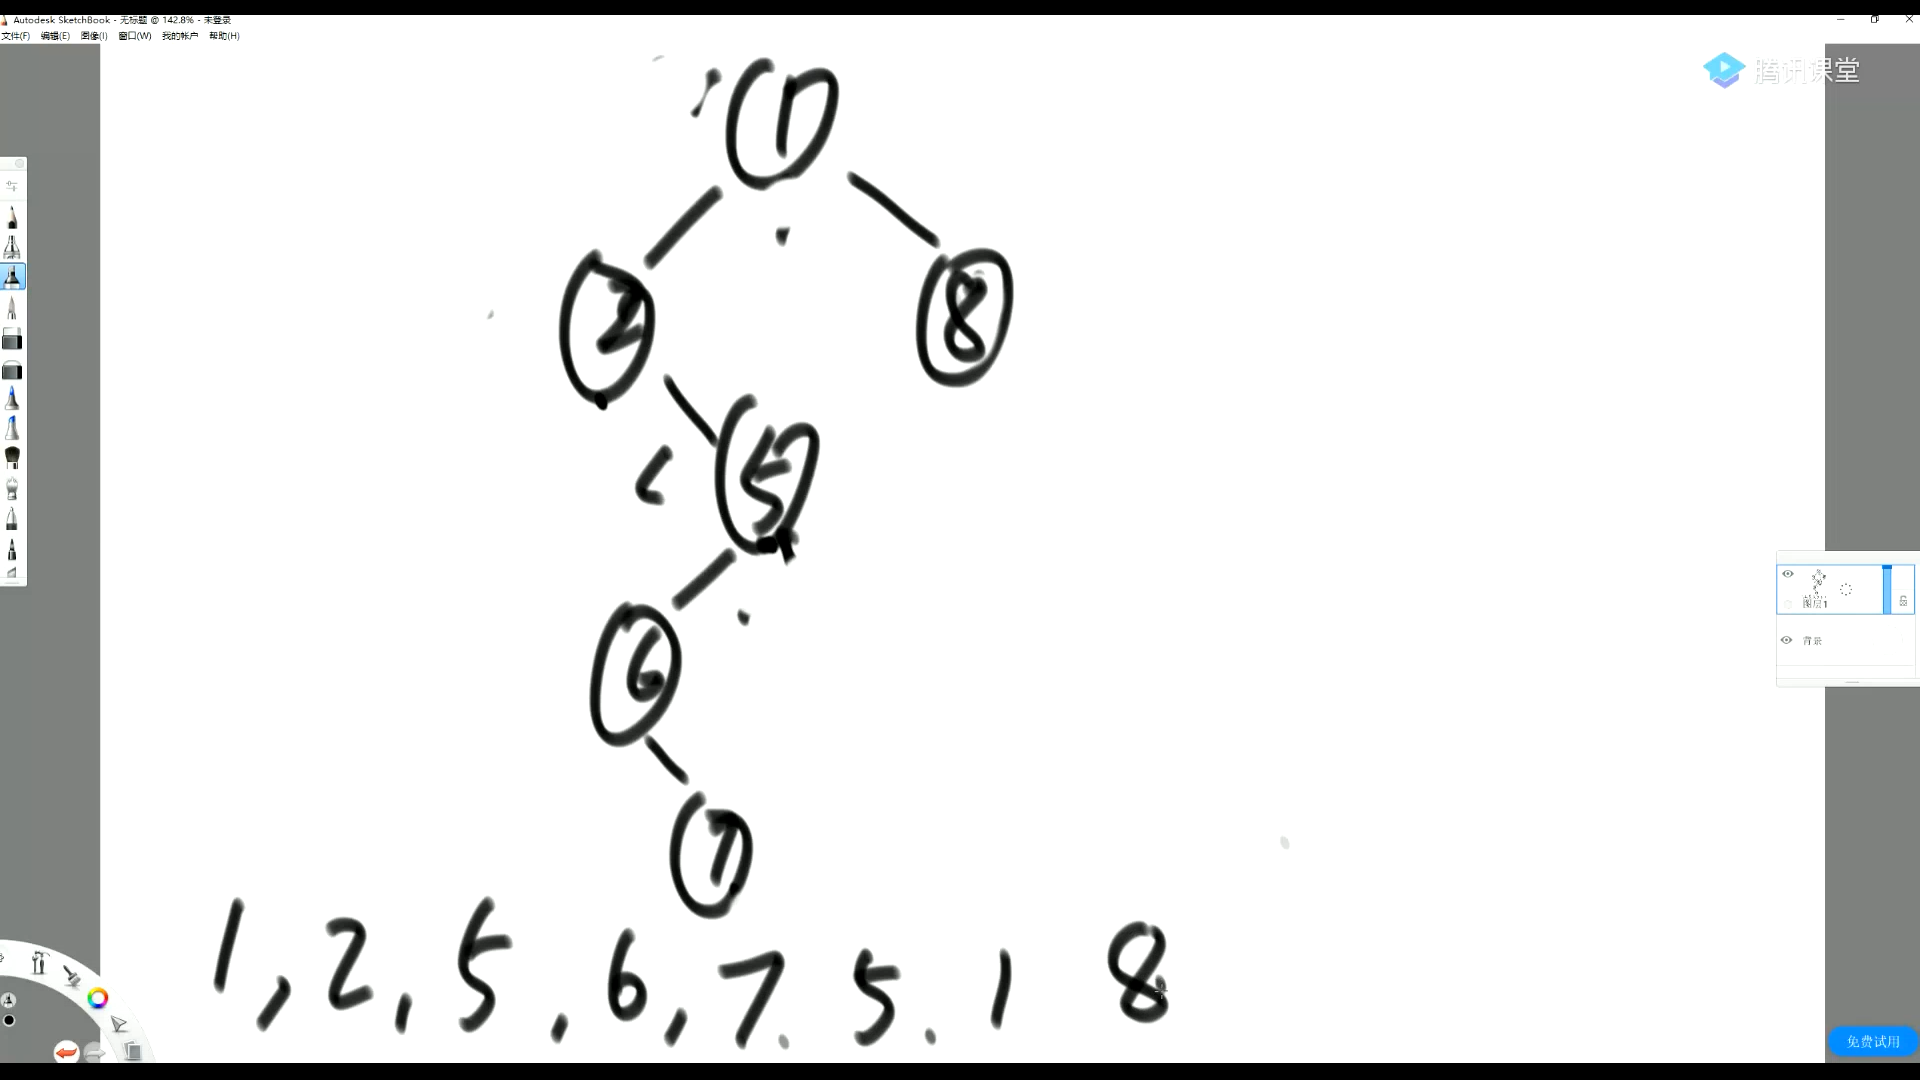 Autodesk SketchBook - 无标题 @ 142.8% - 未登录
文件(F) 编辑(E) 图像(I) 窗口(W) 我的帐户 帮助(H)
腾讯课堂
1
2
8
5
6
7
图层1
背景
1, 2, 5, 6, 7. 5. 1 8
免费试用